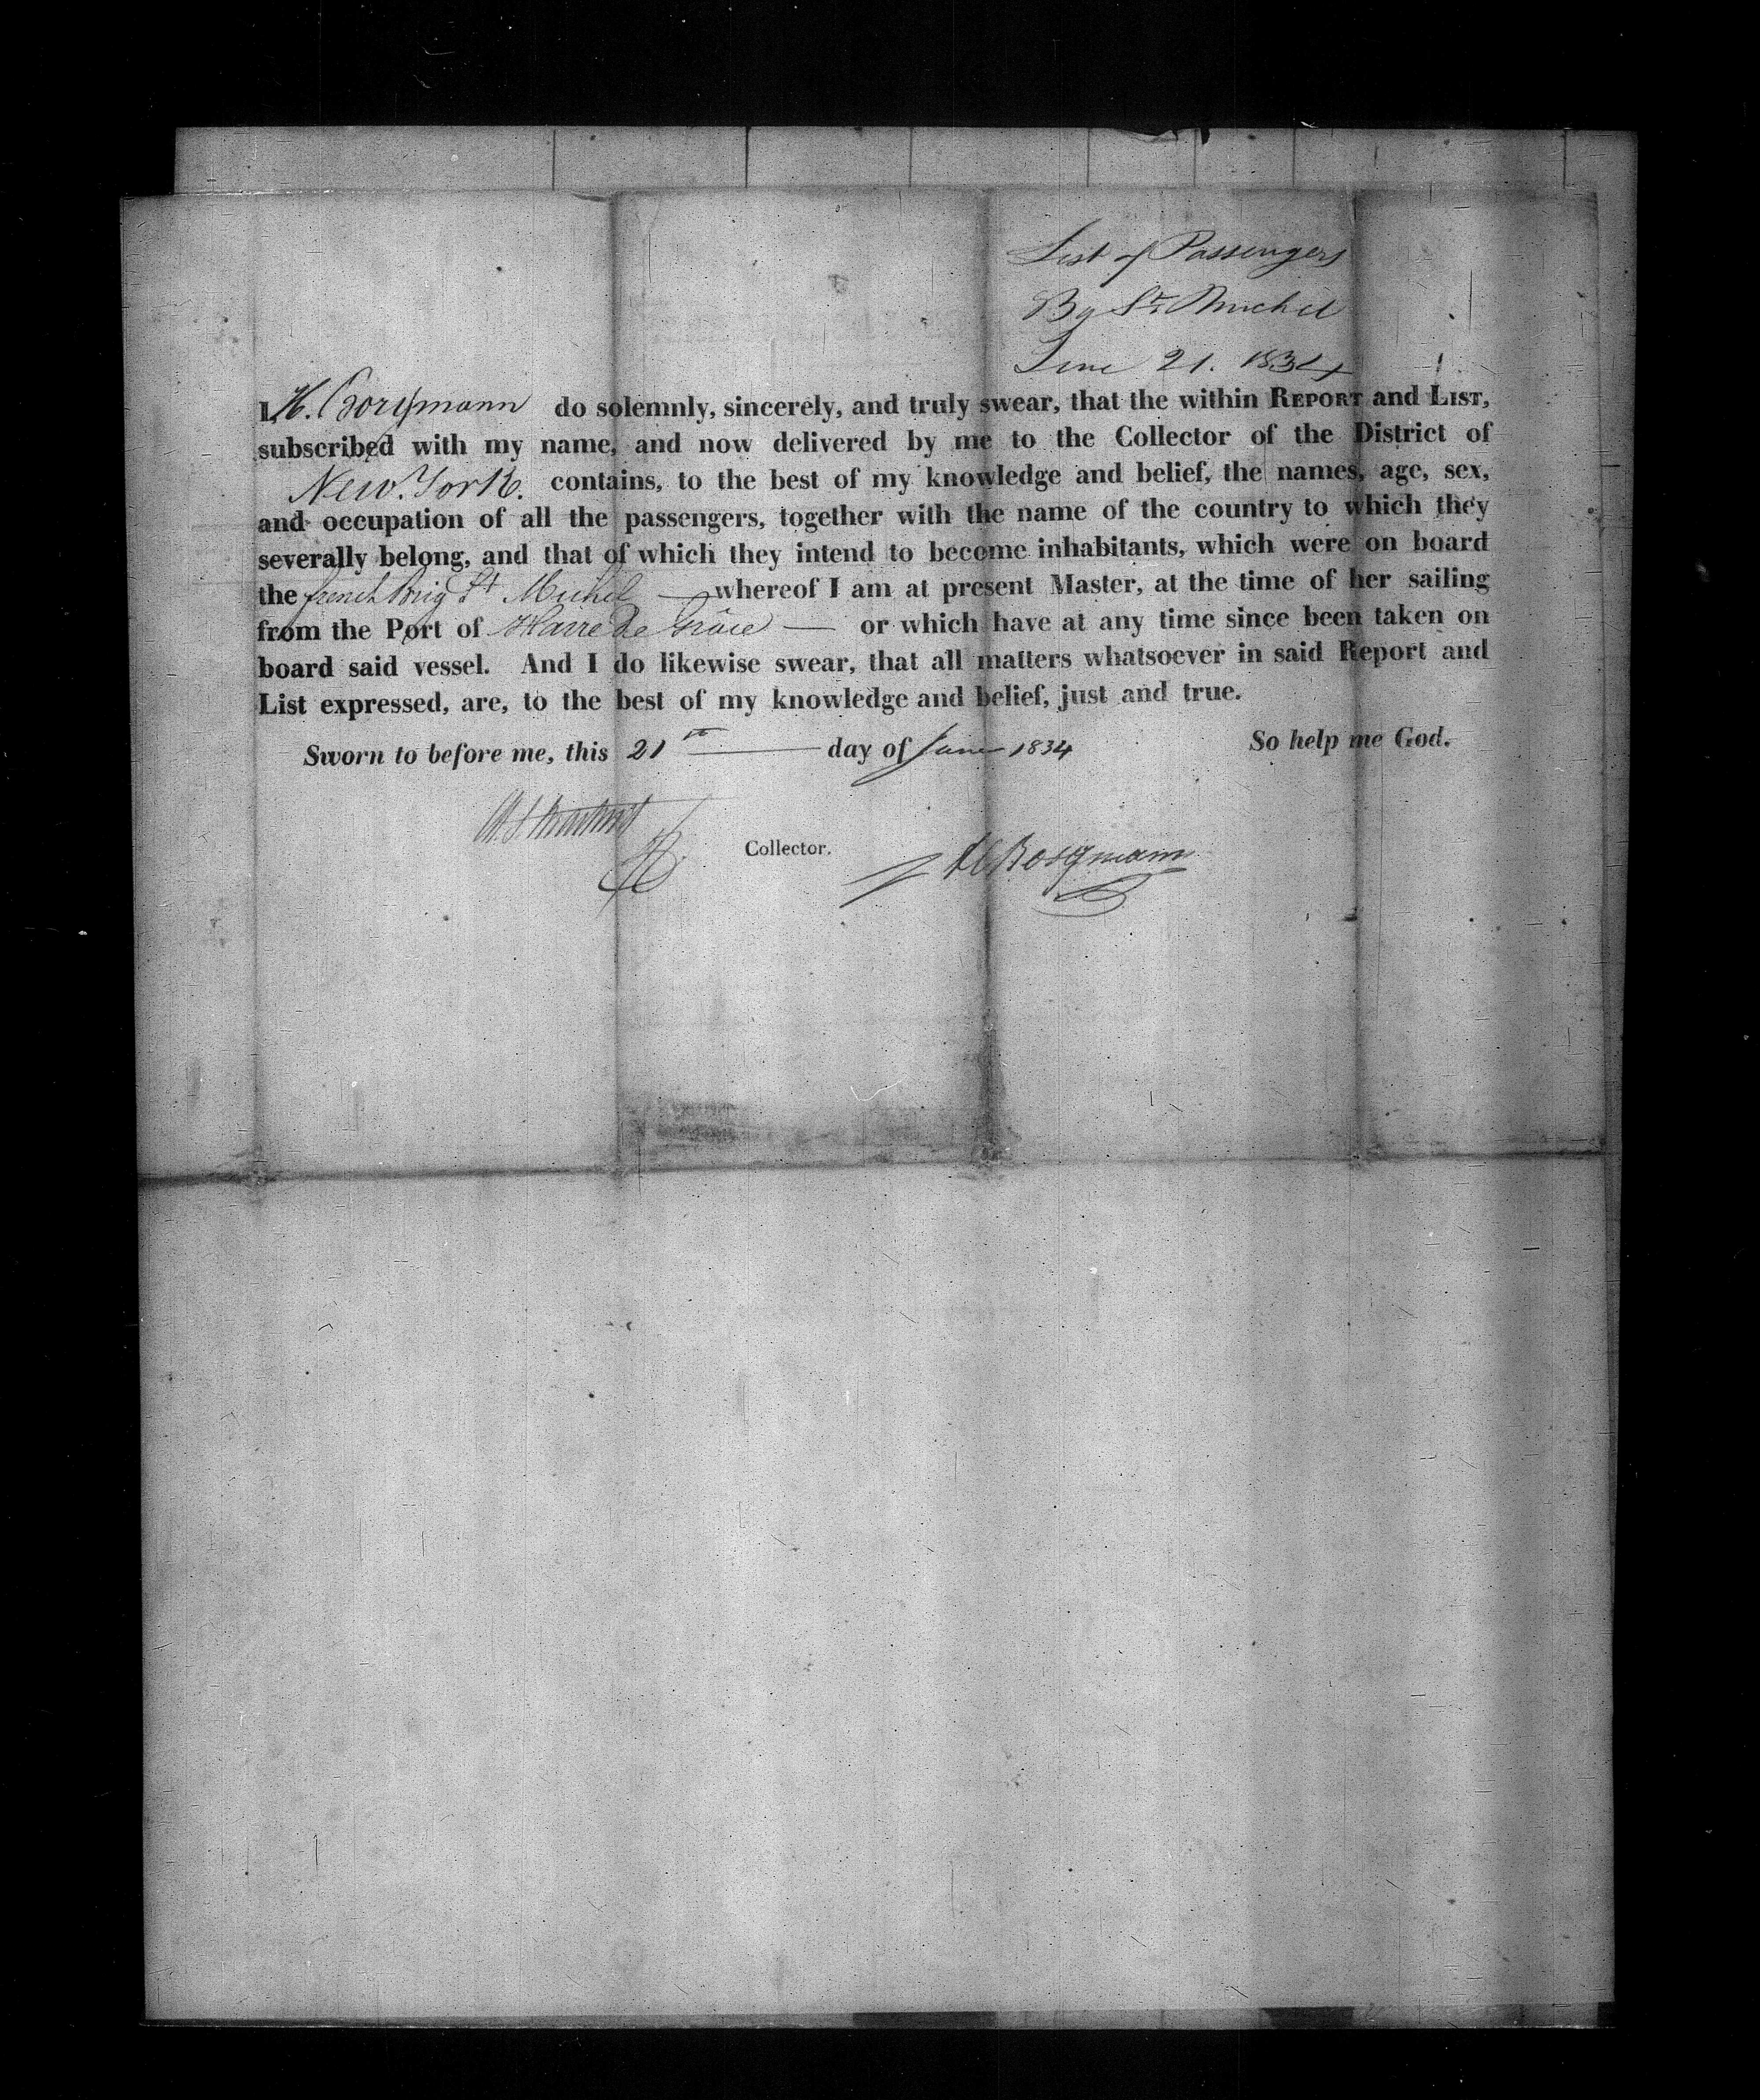 List of Passengers
Bg St. Michel
June 21. 1834
I, H. do solemnly, sincerely, and truly swear, that the within REPORT and LIST,
subscribed with my name, and now delivered by me to the Collector of the District of
New. York. contains, to the best of my knowledge and belief, the names, age, sex,
and occupation of all the passengers, together with the name of the country to which they
severally belong, and that of which they intend to become inhabitants, which were on board
the french Brig St Michel — whereof I am at present Master, at the time of her sailing
from the Port of Havre De Grace — or which have at any time since been taken on
board said vessel. And I do likewise swear, that all matters whatsoever in said Report and
List expressed, are, to the best of my knowledge and belief, just and true.
Sworn to before me, this 21st — day of June 1834 So help me God.
Collector.